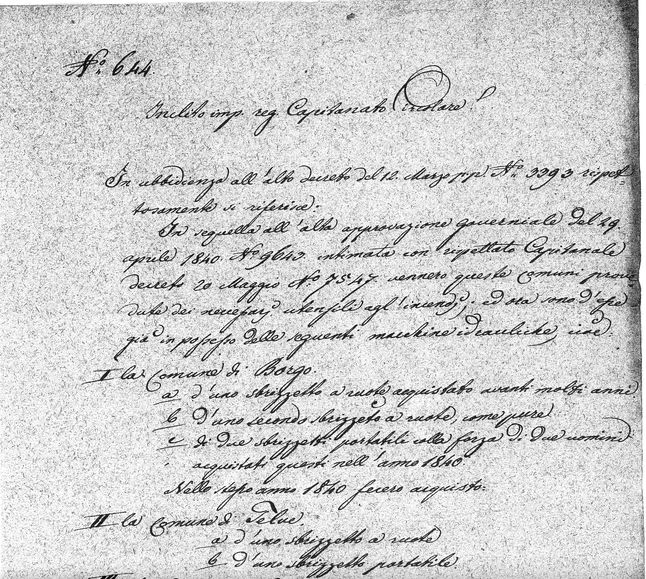 N.º 644
Inclito imp. reg. Capitanato Circolare!
In ubbidienza all'alto decreto del 12. Marzo pp. N.º 3393 rispet-
tosamente si riferisce:
In seguella all'alta approvazione governiale del 29
aprile 1840. N.º 9643. intimata con rispettato Capitanale
decreto 20 Maggio N.º 7547. vennero queste comuni prove-
dute dei necessarj utensili agl'incendj: ed ora sono d'esse
già in possesso delle seguenti macchine idrauliche, cioè:
I la Comune di Borgo.
a d'uno sbrizzetto a ruote acquistato avanti molti anni
b d'uno secondo sbrizzetto a ruote, come pure
c di due sbrizzetti portatili colla forza di due uomini
acquistati questi nell'anno 1840.
Nello stesso anno 1840 fecero acquisto:
II la Comune di Telve
a d'uno sbrizzetto a ruote
b d'uno sbrizzetto portatile.
III